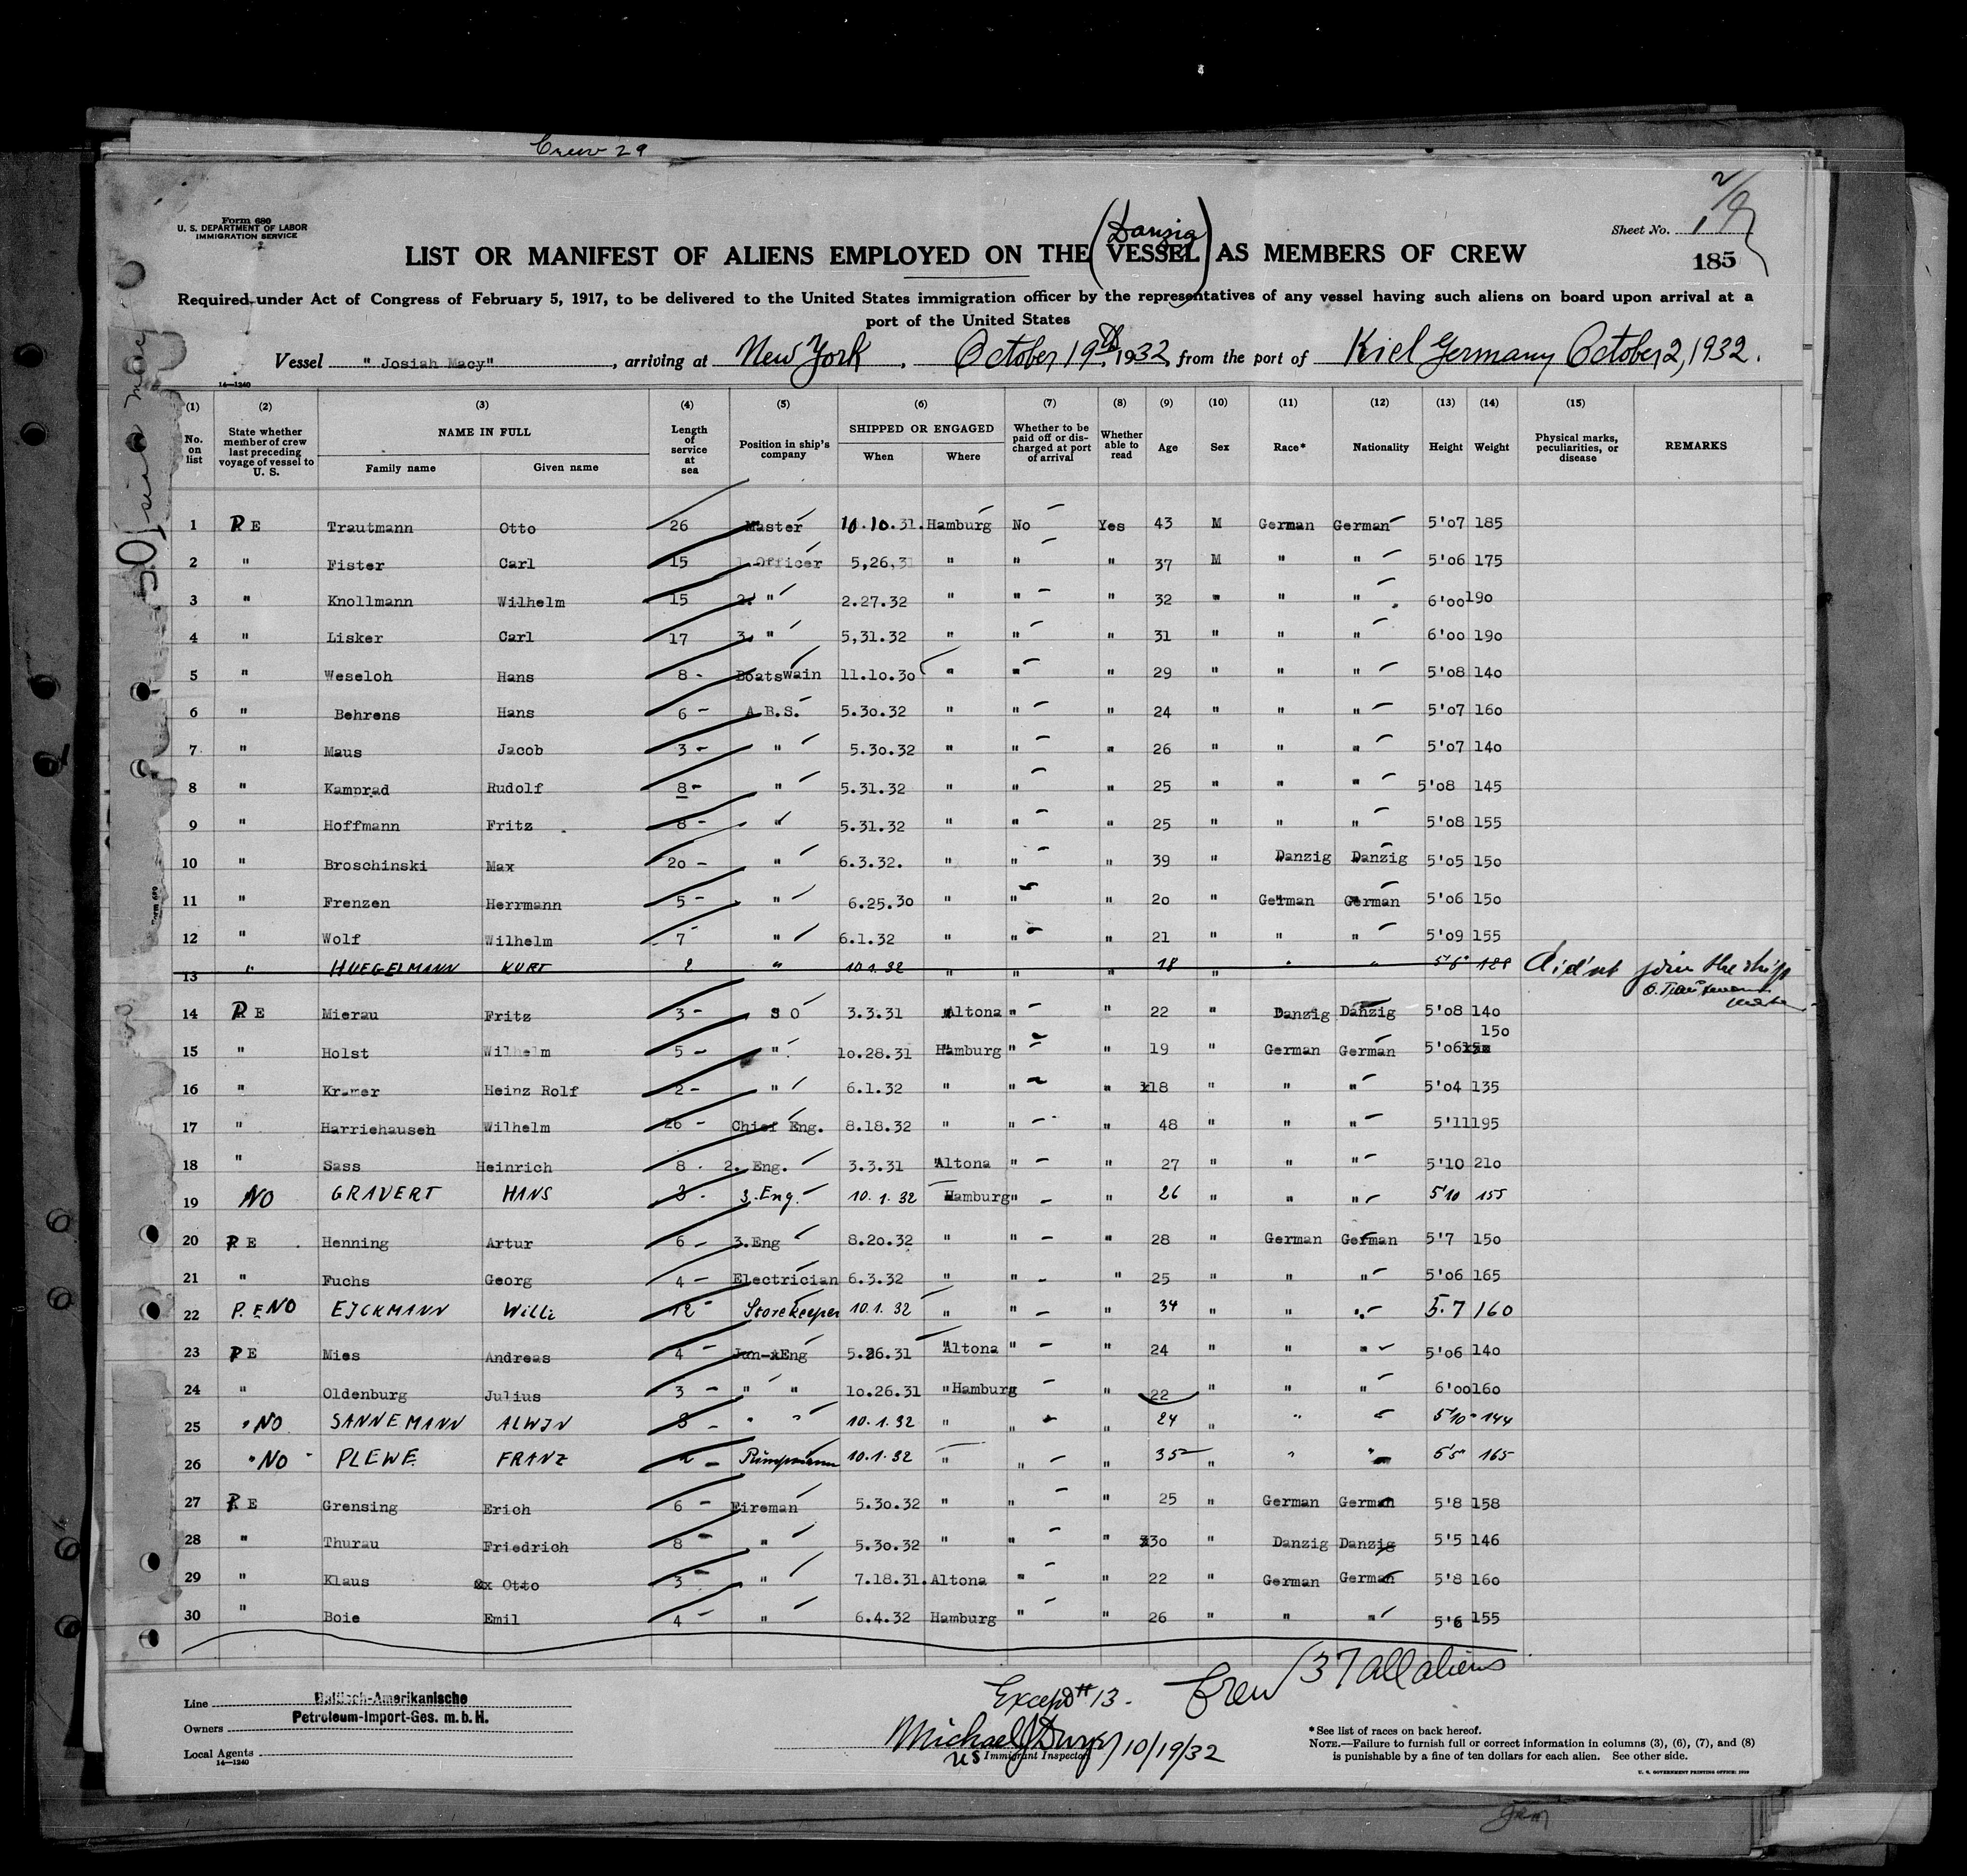 Crew 29
Form 680
U. S. DEPARTMENT OF LABOR
IMMIGRATION SERVICE
Sheet No. 1
2/9
185
LIST OR MANIFEST OF ALIENS EMPLOYED ON THE (VESSEL) AS MEMBERS OF CREW
Danzig
Required under Act of Congress of February 5, 1917, to be delivered to the United States immigration officer by the representatives of any vessel having such aliens on board upon arrival at a
port of the United States
Vessel "Josiah Macy", arriving at New York, October 19th, 1932, from the port of Kiel Germany October 2, 1932.
14—1240
(1) (2) (3) (4) (5) (6) (7) (8) (9) (10) (11) (12) (13) (14) (15)
No. on list | State whether member of crew last preceding voyage of vessel to U. S. | NAME IN FULL Family name Given name | Length of service at sea | Position in ship's company | SHIPPED OR ENGAGED When Where | Whether to be paid off or discharged at port of arrival | Whether able to read | Age | Sex | Race* | Nationality | Height | Weight | Physical marks, peculiarities, or disease | REMARKS
1 RE Trautmann Otto 26 Master 10.10.31. Hamburg No Yes 43 M German German 5'07 185
2 " Fister Carl 15 1.Officer 5,26,31 " " " 37 M " " 5'06 175
3 " Knollmann Wilhelm 15 2. " 2.27.32 " " " 32 " " " 6'00 190
4 " Lisker Carl 17 3. " 5,31.32 " " " 31 " " " 6'00 190
5 " Weseloh Hans 8 - BoatsWain 11.10.30 " " " 29 " " " 5'08 140
6 " Behrens Hans 6 - A.B.S. 5.30.32 " " " 24 " " " 5'07 160
7 " Maus Jacob 3 - " 5.30.32 " " " 26 " " " 5'07 140
8 " Kamprad Rudolf 8 - " 5.31.32 " " " 25 " " " 5'08 145
9 " Hoffmann Fritz 8 - " 5.31.32 " " " 25 " " " 5'08 155
10 " Broschinski Max 20 - " 6.3.32. " " " 39 " Danzig Danzig 5'05 150
11 " Frenzen Herrmann 5 - " 6.25.30 " " " 20 " German German 5'06 150
12 " Wolf Wilhelm 7 - " 6.1.32 " " " 21 " " " 5'09 155
13 " HUEGELMANN KURT 2 " 10.1.32 " " " 18 " " " 5'6" Did'nt join the ship
14 RE Mierau Fritz 3 - S O 3.3.31 Altona " " 22 " Danzig Danzig 5'08 140
15 " Holst Wilhelm 5 - " 10.28.31 Hamburg " " 19 " German German 5'06 150
16 " Kramer Heinz Rolf 2 - " 6.1.32 " " " 18 " " " 5'04 135
17 " Harriehausen Wilhelm 26 - Chief Eng. 8.18.32 " " " 48 " " " 5'11 195
18 " Sass Heinrich 8 - 2. Eng. 3.3.31 "Altona " " 27 " " " 5'10 210
19 NO GRAVERT HANS 3 - 3.Eng. 10.1.32 Hamburg " " 26 " " " 5'10 155
20 RE Henning Artur 6 - 3.Eng 8.20.32 " " " 28 " German German 5'7 150
21 " Fuchs Georg 4 - Electrician 6.3.32 " " " 25 " " " 5'06 165
22 P.E NO EJCKMANN Willi 12 - Storekeeper 10.1.32 " " " 34 " " " 5.7 160
23 RE Mies Andreas 4 - Jun-Eng 5.26.31 "Altona " " 24 " " " 5'06 140
24 " Oldenburg Julius 3 - " " 10.26.31 "Hamburg " 22 " " " 6'00 160
25 " NO SANNEMANN ALWJN 8 - " " 10.1.32 " " " 24 " " " 5'10" 144
26 " NO PLEWE FRANZ 2 - 10.1.32 " " " 35 " " " 165
27 RE Grensing Erich 6 - Fireman 5.30.32 " " " 25 " German German 5'8 158
28 " Thurau Friedrich 8 - " 5.30.32 " " " 30 " Danzig Danzig 5'5 146
29 " Klaus Otto 3 - " 7.18.31. Altona " " 22 " German German 5'8 160
30 " Boie Emil 4 - " 6.4.32 Hamburg " " 26 " " " 5'6 155
Crew 37 all aliens
Except # 13.
Line
Owners
Baltisch-Amerikanische
Petroleum-Import-Ges. m.b.H.
Local Agents
14—1240
10/19/32
US Immigrant Inspector
*See list of races on back hereof.
NOTE.—Failure to furnish full or correct information in columns (3), (6), (7), and (8)
is punishable by a fine of ten dollars for each alien. See other side.
U. S. GOVERNMENT PRINTING OFFICE: 1929